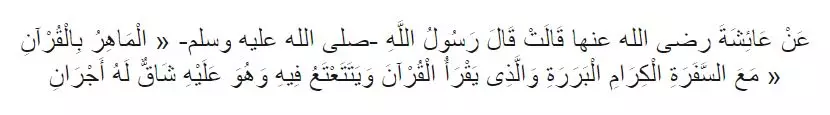 عَنْ عَائِشَةَ رضى الله عنها قَالَتْ قَالَ رَسُولُ اللَّهِ -صلى الله عليه وسلم- « الْمَاهِرُ بِالْقُرْآنِ
مَعَ السَّفَرَةِ الْكِرَامِ الْبَرَرَةِ وَالَّذِى يَقْرَأُ الْقُرْآنَ وَيَتَتَعْتَعُ فِيهِ وَهُوَ عَلَيْهِ شَاقٌّ لَهُ أَجْرَانِ »